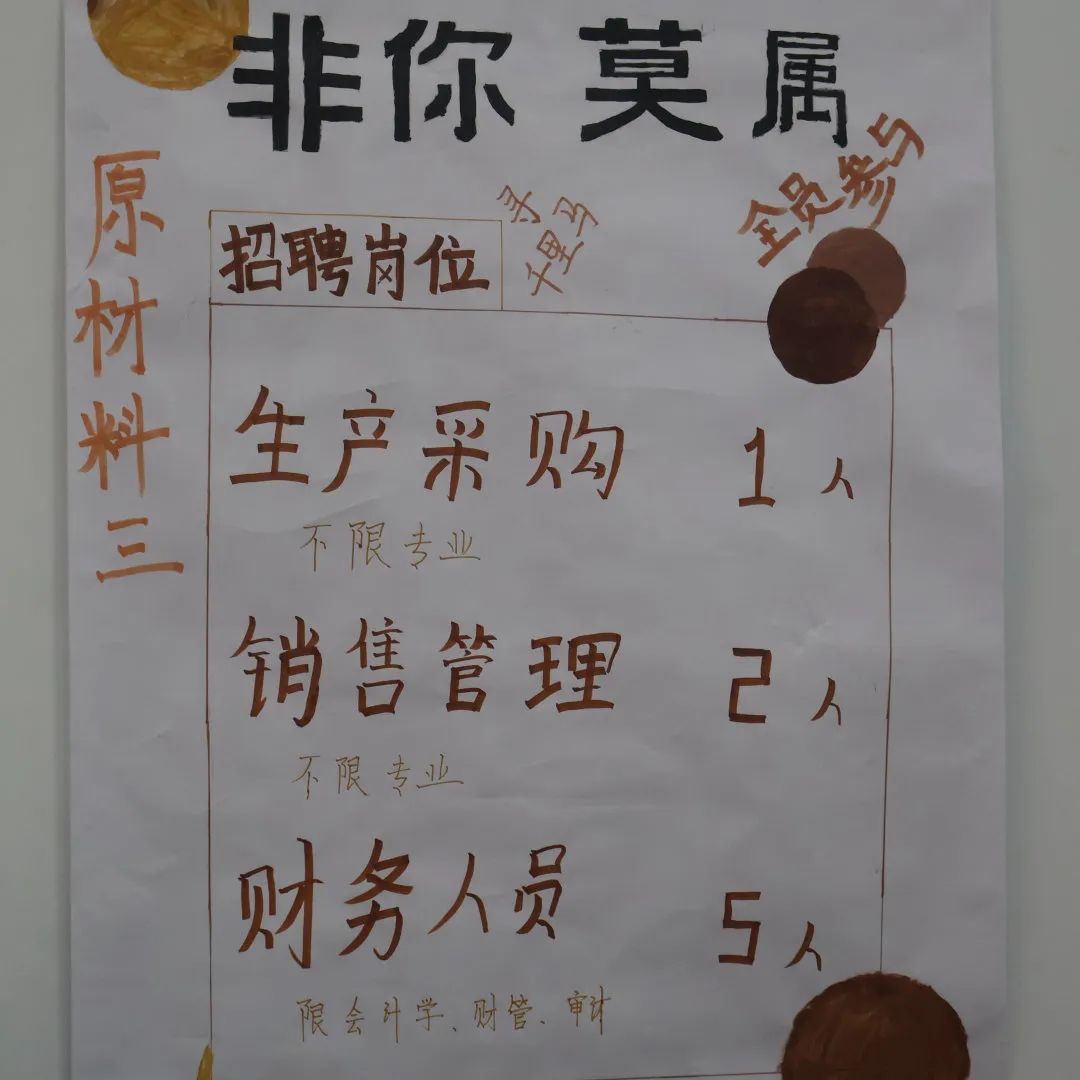 非你莫属
全员参与
原材料三
招聘岗位
寻千里马
生产采购 1人
不限专业
销售管理 2人
不限专业
财务人员 5人
限会计学、财管、审计